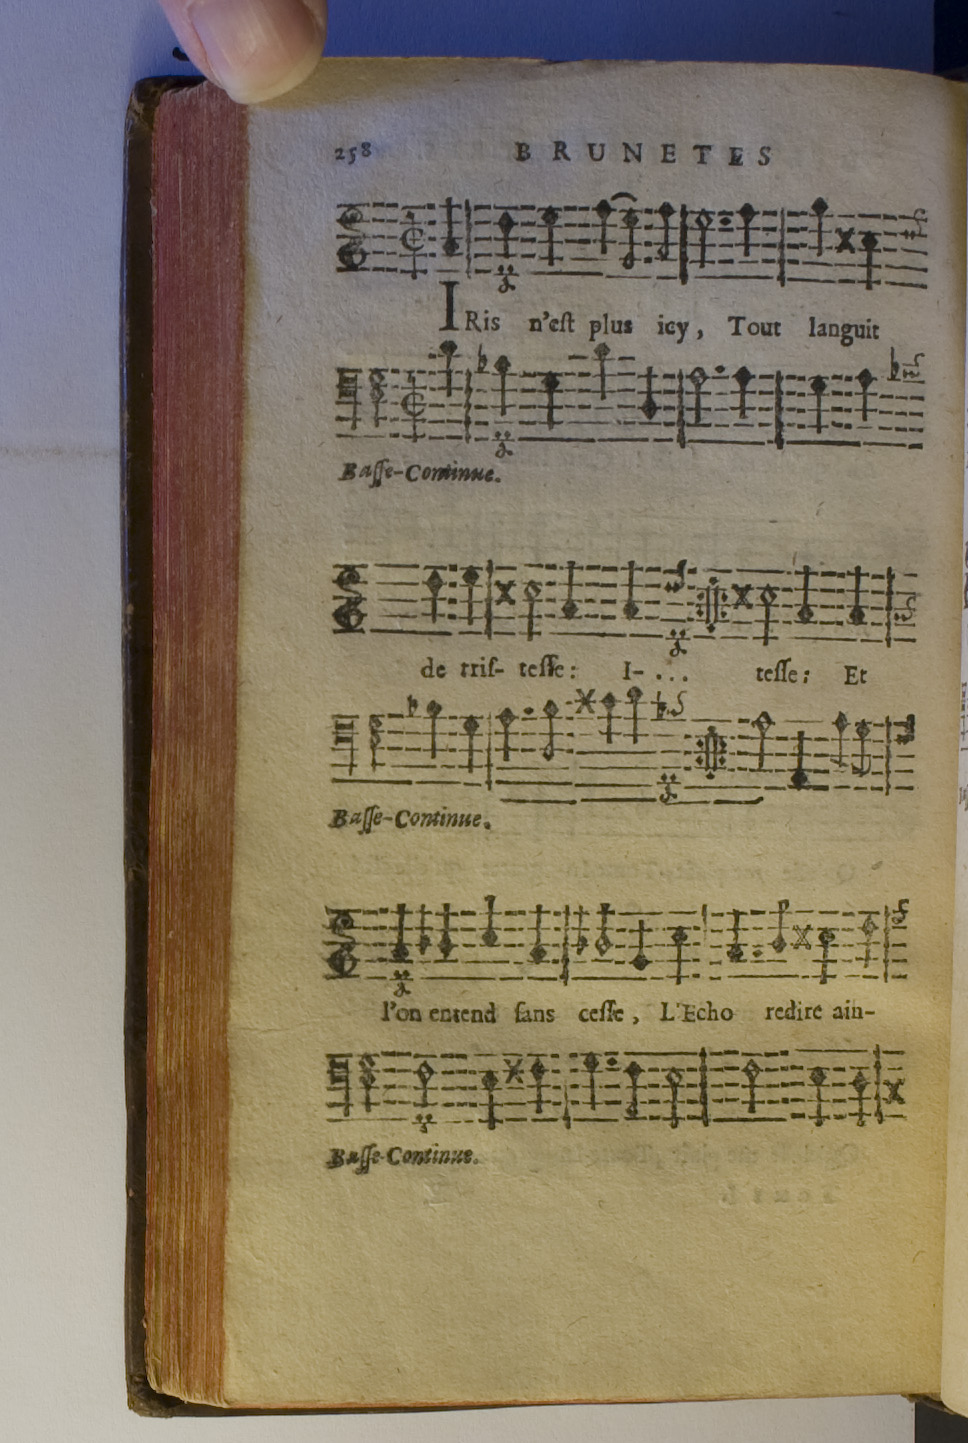 258 BRUNETES
IRis n'eſt plus icy, Tout languit
Baſſe-Continue.
de triſ- teſſe: I- ... teſſe: Et
Baſſe-Continue.
l'on entend ſans ceſſe, L'Echo redire ain-
Baſſe-Continue.